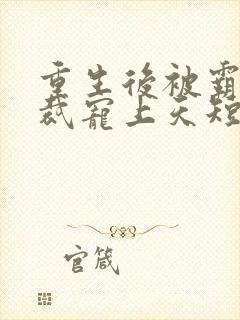 重生後被霸
裁寵上天短
官箴